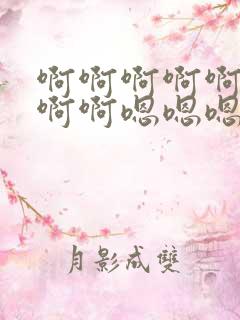 啊啊啊啊啊
啊啊嗯嗯嗯
月影成雙